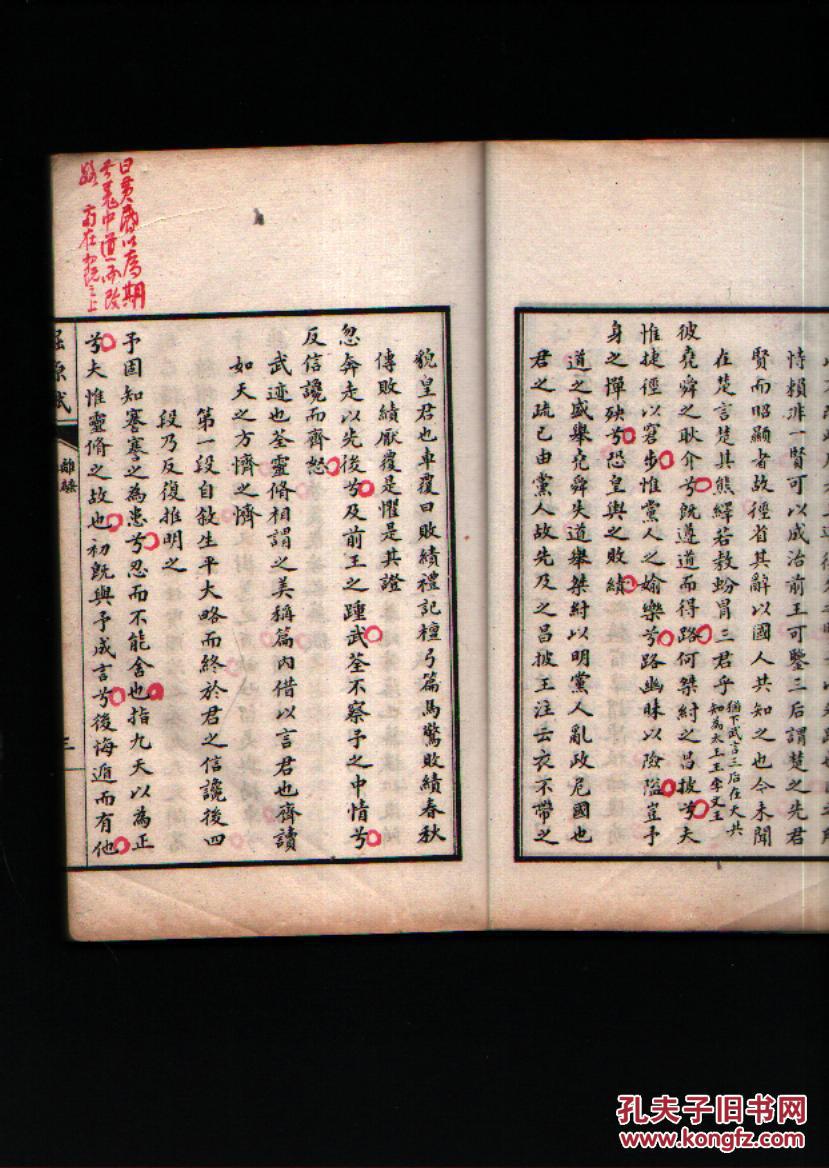 恃賴非一賢可以成治前王可鑒三后謂楚之先君
賢而昭顯者故徑省其辭以國人共知之也今未聞
在楚言楚其熊繹若敖蚡冒三君乎猶下武言三后在天共
知為太王王季文王
彼堯舜之耿介兮旣遵道而得路何桀紂之昌披兮夫
惟捷徑以窘步惟黨人之婾樂兮路幽昧以險隘豈予
身之憚殃兮恐皇輿之敗績
道之盛舉堯舜失道舉桀紂以明黨人亂政危國也
君之疏己由黨人故先及之昌披王注云衣不帶之
貌皇君也車覆曰敗績禮記檀弓篇馬驚敗績春秋
傳敗績厭覆是懼是其證
忽奔走以先後兮及前王之踵武荃不察予之中情兮
反信讒而齊怒
武迹也荃靈脩相謂之美稱篇內借以言君也齊讀
如天之方懠之懠
第一段自敘生平大略而終於君之信讒後四
段乃反復推明之
予固知謇謇之為患兮忍而不能舍也指九天以為正
兮夫惟靈脩之故也初旣與予成言兮後悔遁而有他
屈原賦
離騷
三
曰黃昏以為期
兮羌中道而改
路 當在初旣之上
孔夫子旧书网
www.kongfz.com